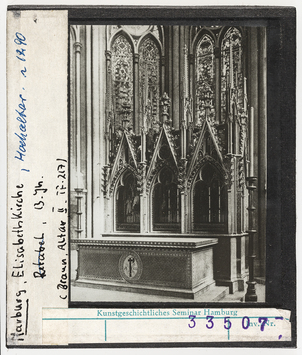 Marburg, Elisabethkirche, Hochaltar. n 1290
Retabel. 13. Jh.
(Braun, Altar II, T. 217)
Kunstgeschichtliches Seminar Hamburg
33507
INV. NR.